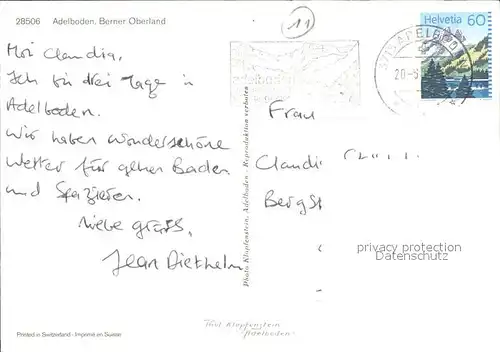 28506 Adelboden, Berner Oberland
11
Helvetia 60
3715 ADELBODEN
20-5
Moi Claudia,
Ich bin drei Tage in
Adelboden.
Wir haben wunderschöne
Wetter für gehen Baden
und Spazieren.
Liebe grüss,
Jean Diethelm
Frau
Claudi
Bergst
Photo Klopfenstein, Adelboden - Reproduktion verboten
privacy protection
Datenschutz
Phot Klopfenstein
Adelboden
Printed in Switzerland - Imprimé en Suisse